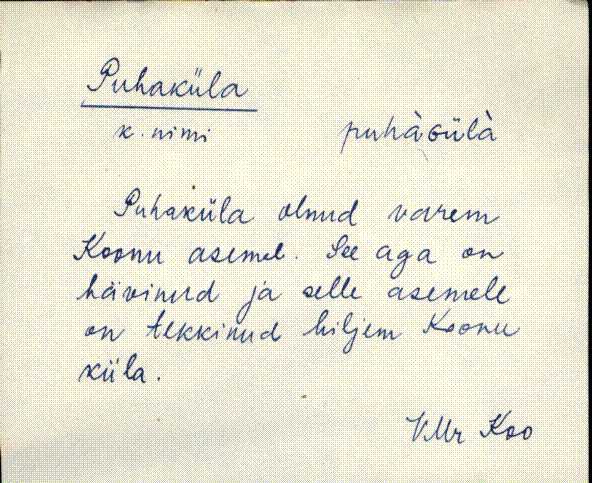 Puhaküla
k. nimi puhàɢülà
Puhaküla olnud varem
Koonu asemel. See aga on
hävinud ja selle asemele
on tekkinud hiljem Koonu
küla.
VMr Koo